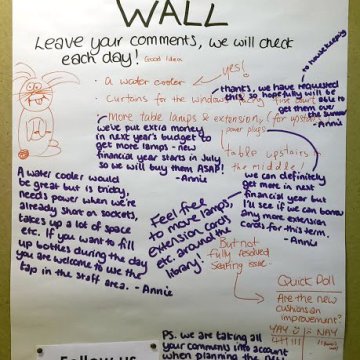 WALL
Leave your comments, we will check
each day! Good Idea
yes!
to housekeeping
· a water cooler
· Curtains for the windows facing fine court
thanks, we have requested
this so hopefully will be
able to
get them over
the summer
- Annie
· More table lamps & extensions (for upstairs)
power plugs
we've put extra money
in next year's budget to
get more lamps - new
financial year starts in July
so we will buy them ASAP!
- Annie
table upstairs in
the middle!
we can definitely
get more in next
financial year but
I'll see if we can borrow
any more extension
cords for this term.
- Annie
A water cooler would
be great but is tricky,
needs power when we're
already short on sockets,
takes up a lot of space
etc. If you want to fill
up bottles during the day
you are welcome to use the
tap in the staff area. - Annie
Feel free
to move lamps,
extension cords
etc. around the
library!
But not
fully resolved
seating issue.
Quick Poll
Are the new
cushions an
improvement?
YAY
NAY
PS. we are taking all
your comments into account
when planning the
Follow us